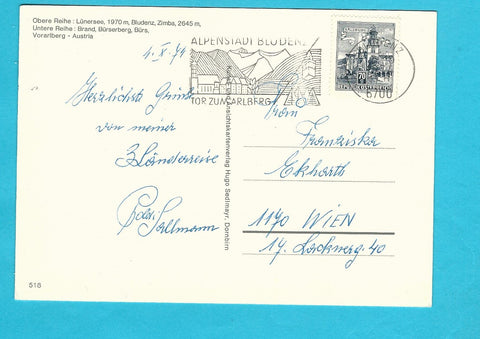 Obere Reihe : Lünersee, 1970 m, Bludenz, Zimba, 2645 m,
Untere Reihe : Brand, Bürserberg, Bürs,
Vorarlberg - Austria
4. X. 74
Herzlichste Grüße
von meiner
3 Länderreise
Sallmann
518
Hugo Sedlmayr, Dornbirn
ALPENSTADT BLUDENZ
TOR ZUM ARLBERG
6700
70
REPUBLIK ÖSTERREICH
Frau
Franziska
Ekharth
1170 WIEN
17. Lacknerg. 40